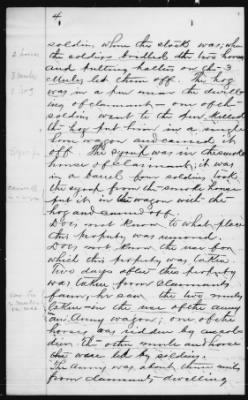 4
soldier where the stock was; when
the soldiers bridled the two horses
and putting halters on the 3
mules led them off. The hog
was in a pen near the dwell-
ing of claimant — one of the
soldiers went to the pen killed
the hog put him in a
wagon and carried it
off. The syrup was in the smoke
house of claimant; it was
in a barrel four soldiers took
the syrup from the smoke house
put it in the wagon with the
hog and carried off.
Does not know to what place
this property was carried.
Does not know the use for
which this property was taken.
Two days after this property
was taken from claimants
farm, he saw the two mules
in the use of the army
an Army wagon; one of the
horses was ridden by a
the other mule and horse
were led by soldiers.
The Army was about three miles
from claimants dwelling
2 horses
3 mules
1 hog
Syrup